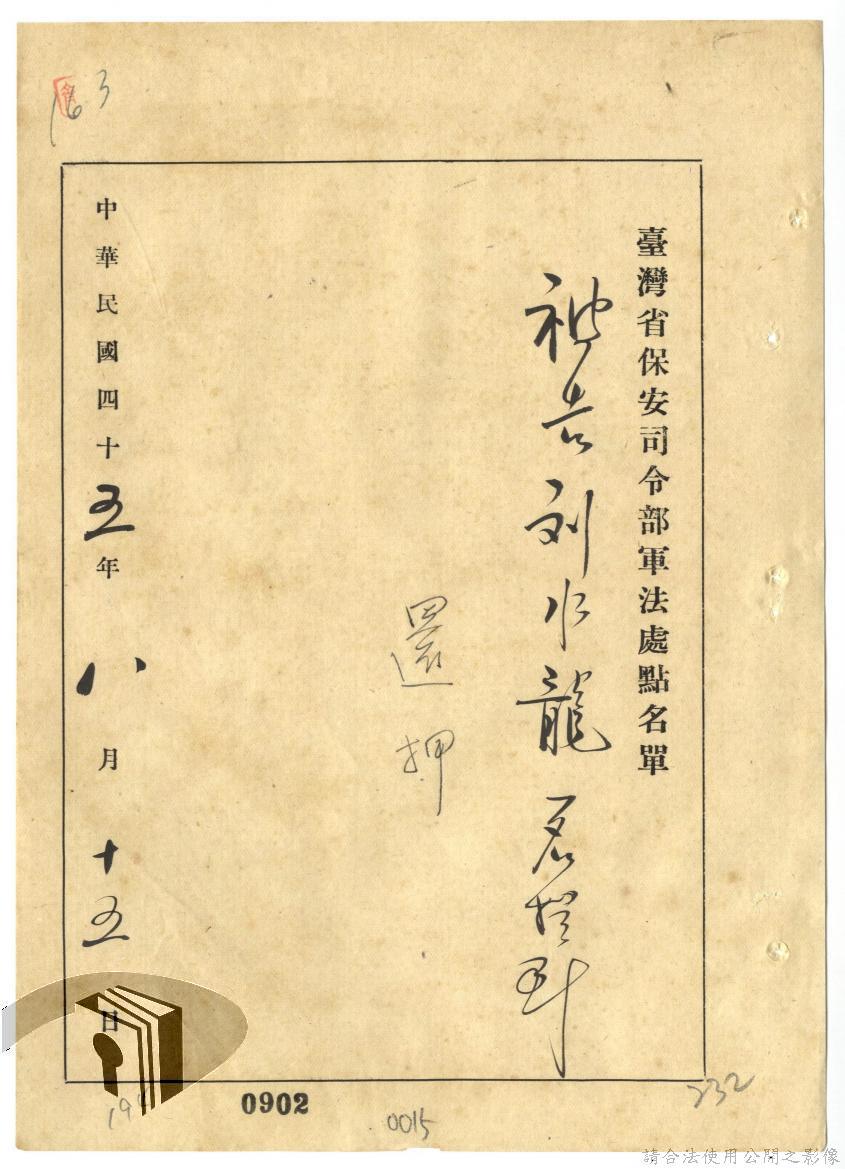 臺灣省保安司令部軍法處點名單
被告刘水龍
還押
中華民國四十五年八月十五日
163
0902
0015
232
請合法使用公開之影像